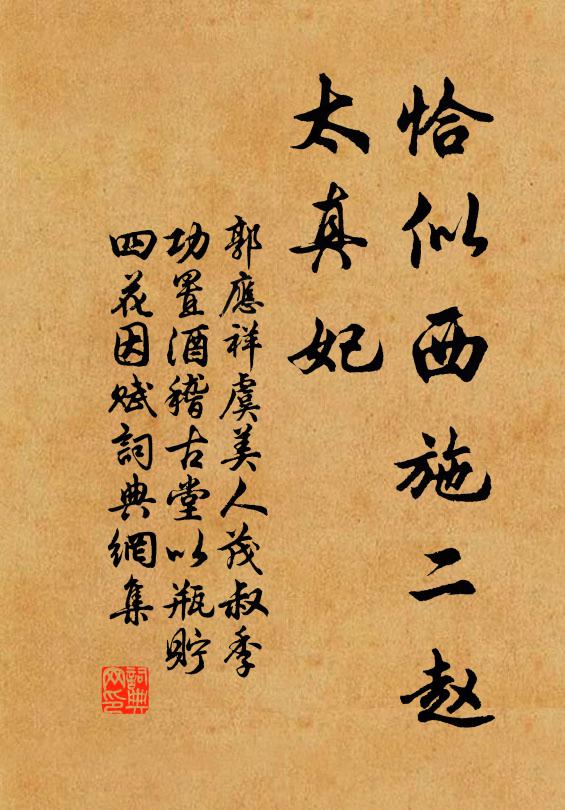 恰似西施二赵
太真妃
郭應祥虞美人茂叔季
功置酒稽古堂以瓶貯
四花因赋詞典網集
詞典
网印